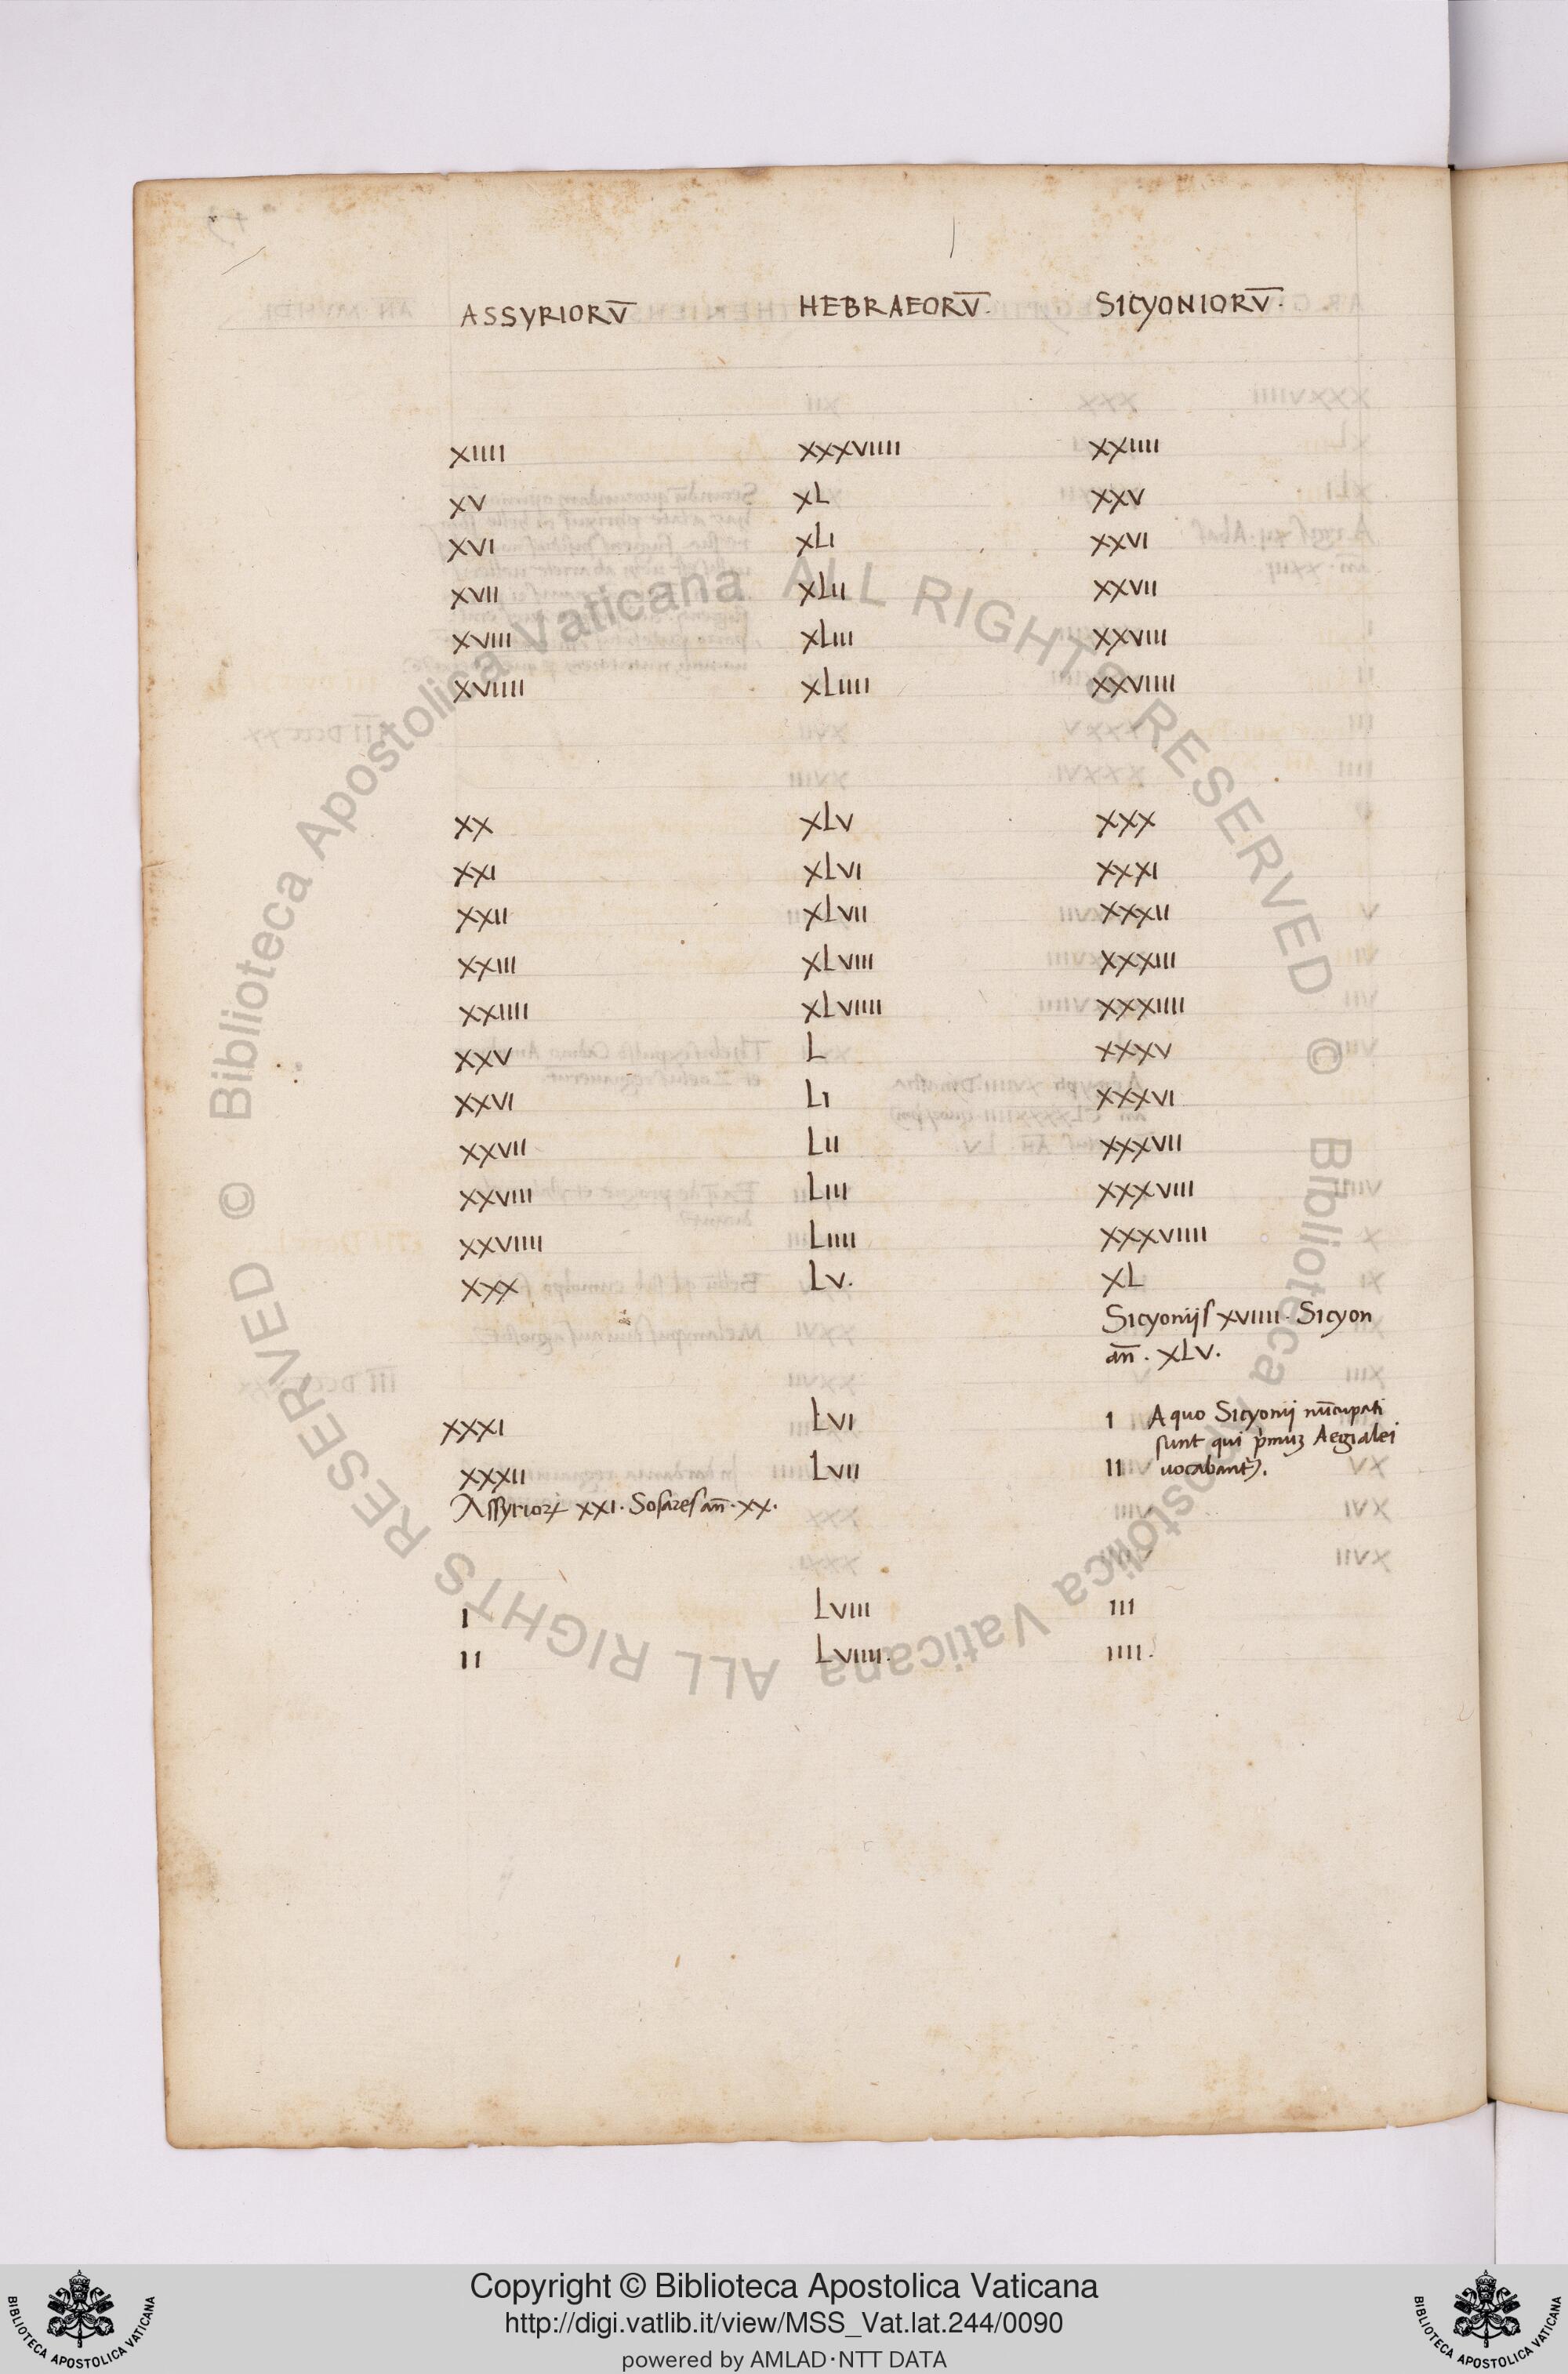 ASSYRIORV̅ HEBRAEORV̅. SICYONIORV̅.
XIIII XXXVIIII XXIIII
XV XL XXV
XVI XLI XXVI
XVII XLII XXVII
XVIII XLIII XXVIII
XVIIII XLIIII XXVIIII
XX XLV XXX
XXI XLVI XXXI
XXII XLVII XXXII
XXIII XLVIII XXXIII
XXIIII XLVIIII XXXIIII
XXV L XXXV
XXVI LI XXXVI
XXVII LII XXXVII
XXVIII LIII XXXVIII
XXVIIII LIIII XXXVIIII
XXX LV. XL
Sicyonijſ XVIIII. Sicyon
an̅. XLV.
XXXI LVI I A quo Sicyonij nu̅cupati
ſunt qui p̍muꝫ Aegialei
XXXII LVII II uocabant᷑.
Aſſyrioꝝ XXI. Soſareſ an̅. XX.
I LVIII III
II LVIIII. IIII.
© Biblioteca Apostolica Vaticana ALL RIGHTS RESERVED
© Biblioteca Apostolica Vaticana ALL RIGHTS RESERVED
Copyright © Biblioteca Apostolica Vaticana
http://digi.vatlib.it/view/MSS_Vat.lat.244/0090
powered by AMLAD·NTT DATA
BIBLIOTECA APOSTOLICA VATICANA
BIBLIOTECA APOSTOLICA VATICANA